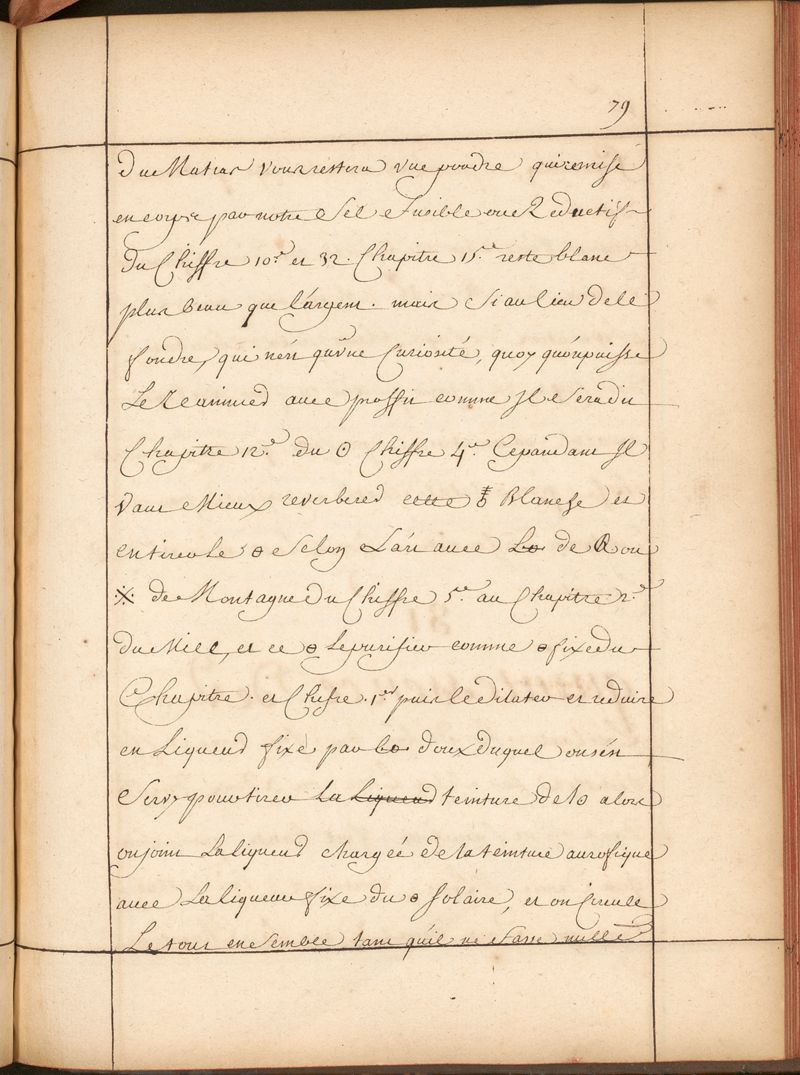 79
du Matras vous restera une poudre qui remise
en corps par notre Sel Fusible ou Reductif
du Chiffre 10.e et 32. Chapitre 15.e reste blanc
plus beau que l'argent. mais Si au lieu de le
fondre, qui n'en qu'une Curiosité, quoy qu'on puisse
Le Reanimer avec proffit comme Jl Sera dit
Chapitre 12.e du ☉ Chiffre 4.e Cepandant Jl
Vaut Mieux reverberer cette Blanche et
en tirer le Selon L'art avec de ou
de Montagne du Chiffre 5.e au Chapitre 2.e
du Miel, et ce Le purifier comme fixe du
Chapitre. et Chifre. 1.er puis le dilater et reduire
en Liqueur fixe par doux duquel on s'en
Servy pour tirer la Liqueur teinture de alors
on joint La liqueur chargeé de la teinture aurofique
avec La liqueur fixe du Solaire, et on Circule
Le tout ensemble tant qu'il ne Fasse nulle